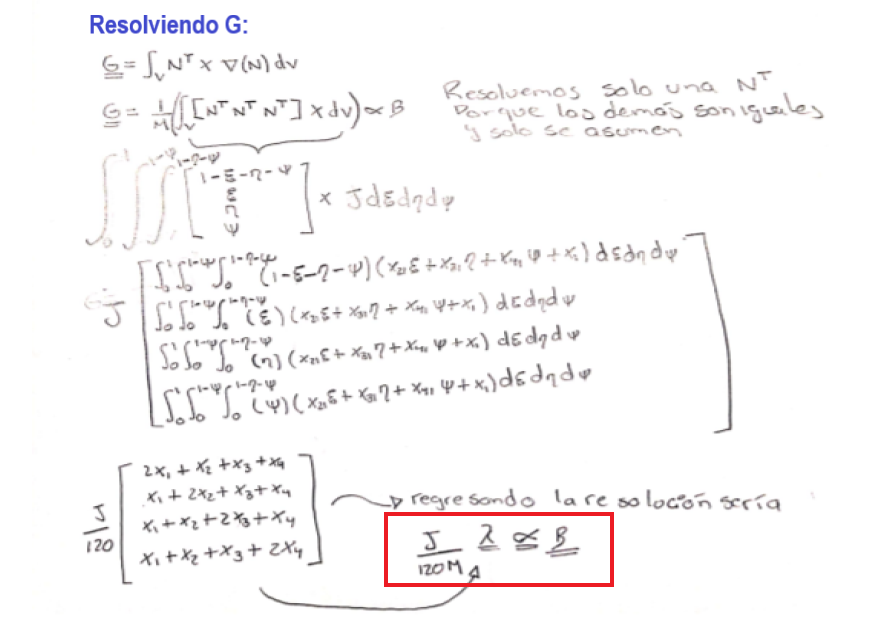 Resolviendo G:
G = ∫v N^T x ∇(N) dv
G = 1/M (∫v [N^T N^T N^T] x dv) ∝ B
Resolvemos solo una N^T
Porque las demás son iguales
y solo se asumen
∫₀¹ ∫₀^(1-ψ) ∫₀^(1-η-ψ) [1-ε-η-ψ
ε
η
ψ] x J dε dη dψ
J [∫₀¹ ∫₀^(1-ψ) ∫₀^(1-η-ψ) (1-ε-η-ψ)(x₂₁ε + x₃₁η + x₄₁ψ + x₁) dε dη dψ
∫₀¹ ∫₀^(1-ψ) ∫₀^(1-η-ψ) (ε)(x₂₁ε + x₃₁η + x₄₁ψ + x₁) dε dη dψ
∫₀¹ ∫₀^(1-ψ) ∫₀^(1-η-ψ) (η)(x₂₁ε + x₃₁η + x₄₁ψ + x₁) dε dη dψ
∫₀¹ ∫₀^(1-ψ) ∫₀^(1-η-ψ) (ψ)(x₂₁ε + x₃₁η + x₄₁ψ + x₁) dε dη dψ]
J/120 [2x₁ + x₂ + x₃ + x₄
x₁ + 2x₂ + x₃ + x₄
x₁ + x₂ + 2x₃ + x₄
x₁ + x₂ + x₃ + 2x₄]
regresando la resolución sería
J/120M λ ∝ B